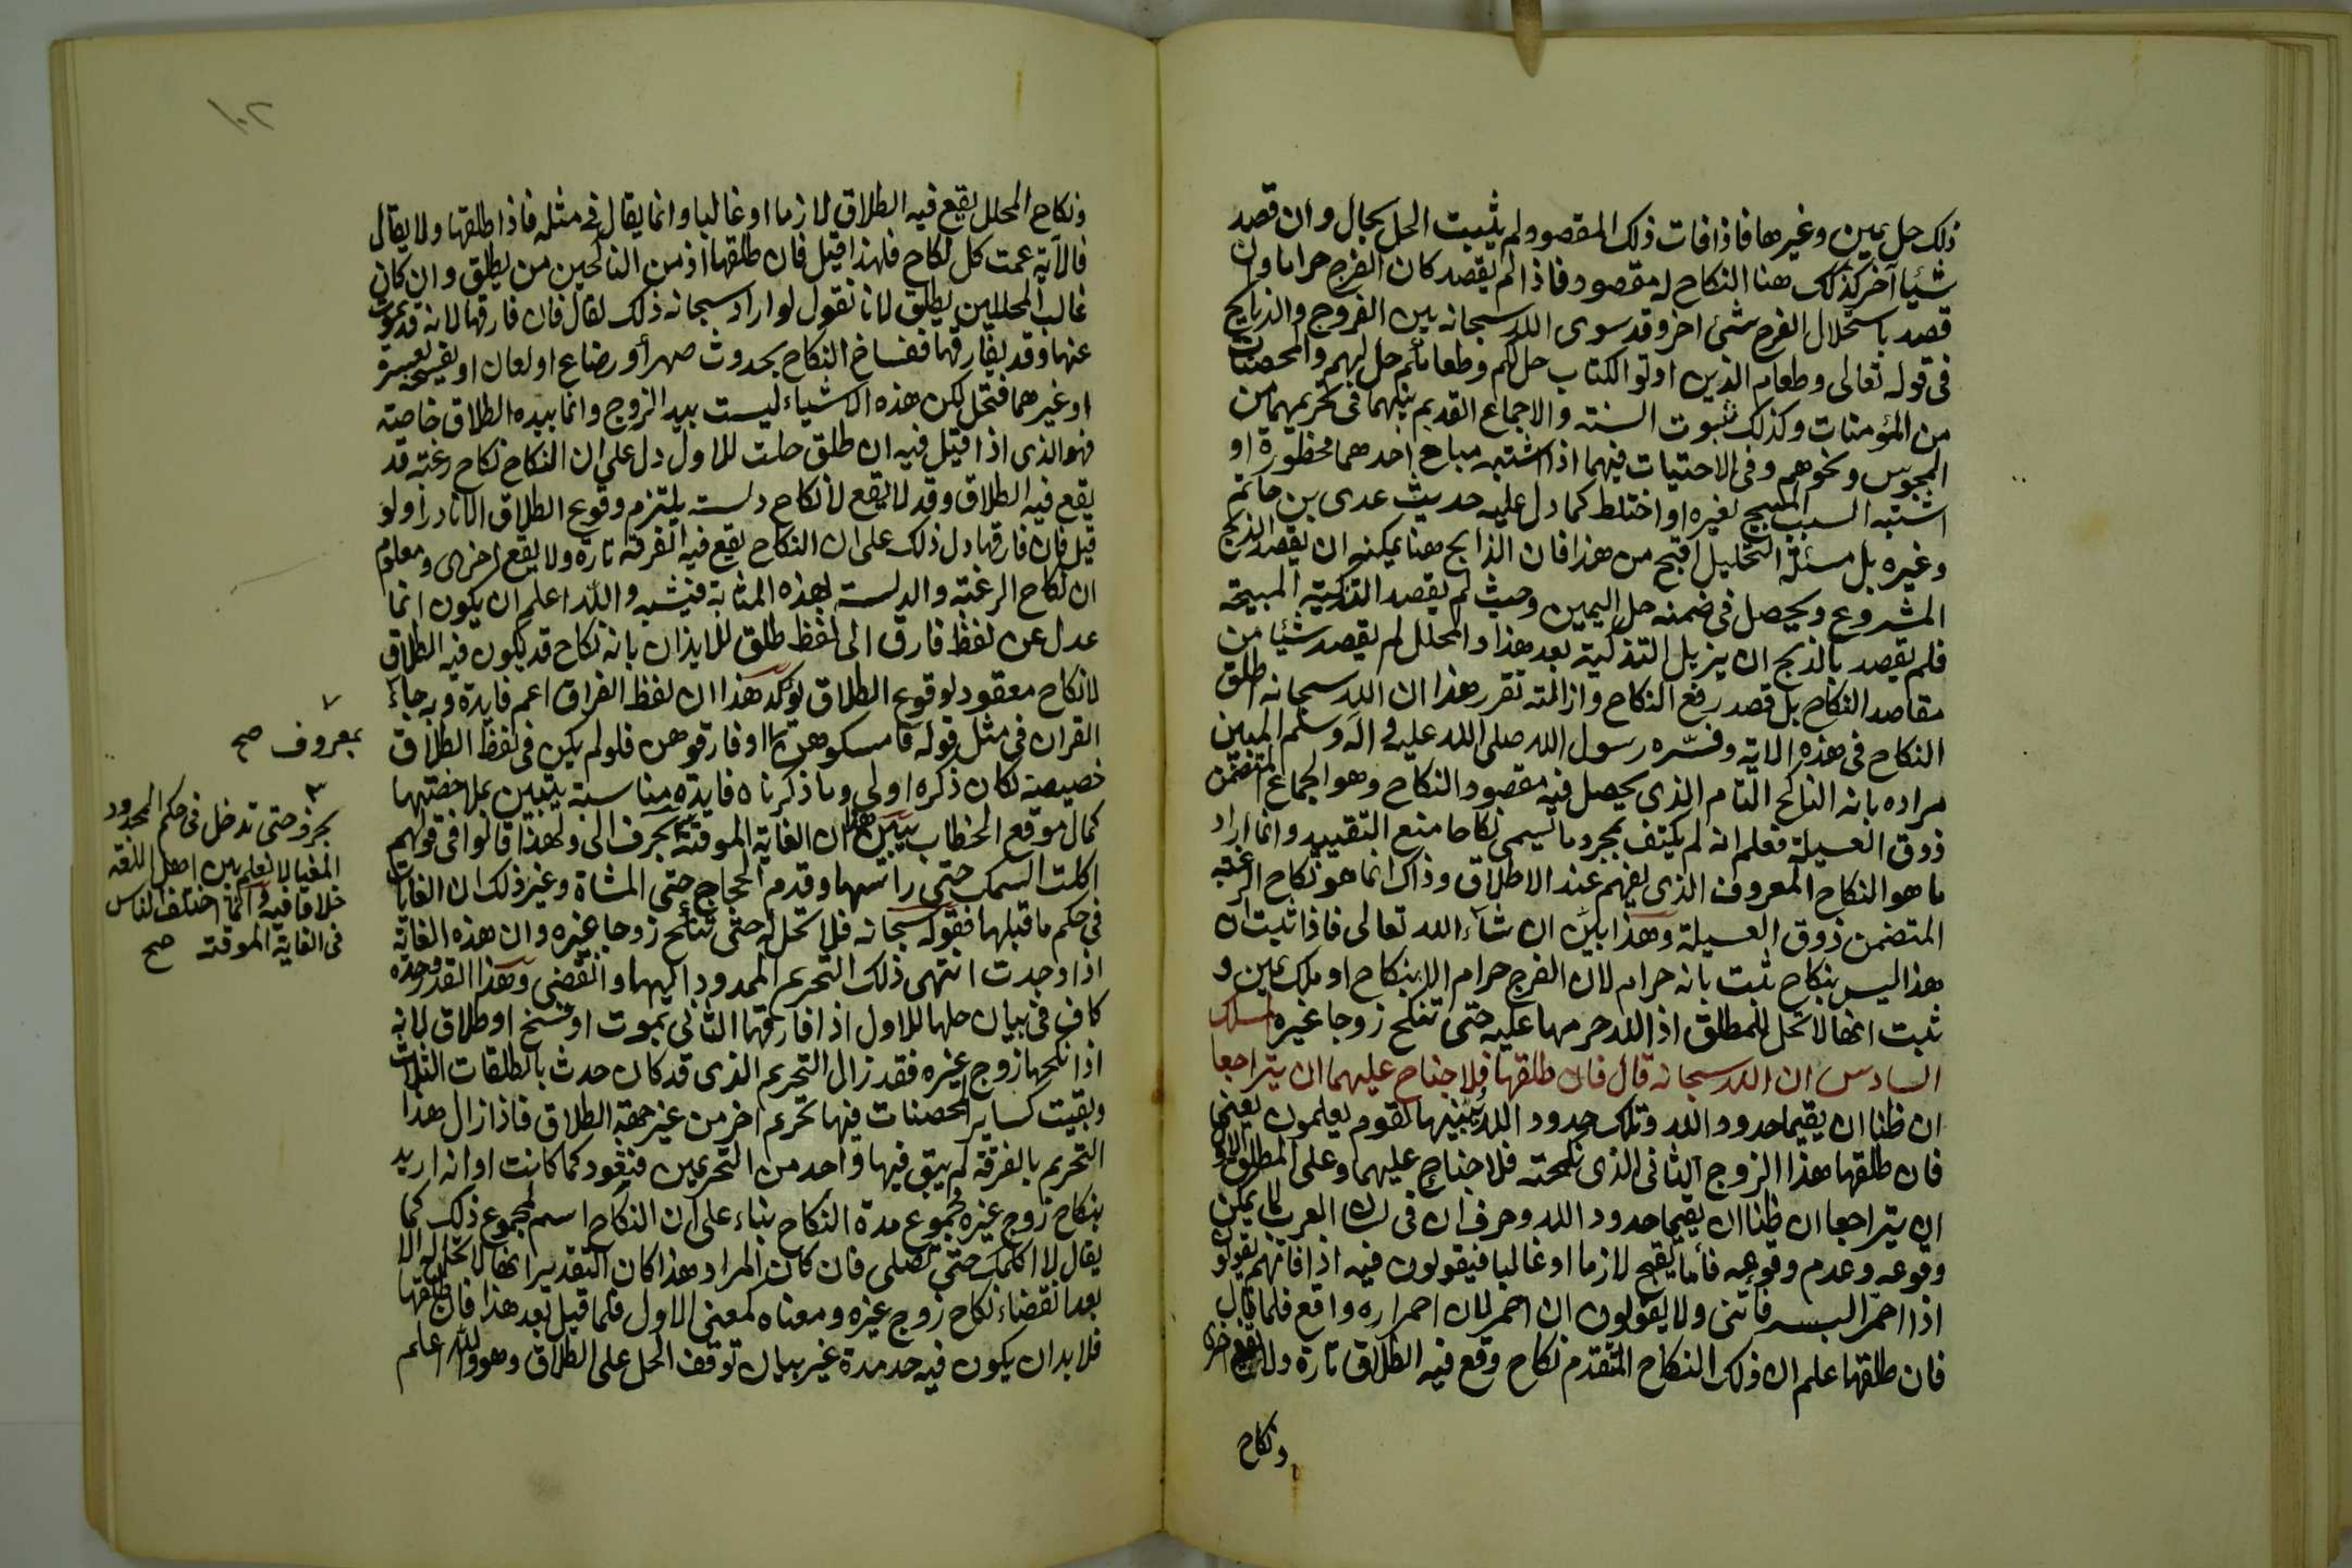 ذلك حل يمين وغيرها فاذا فات ذلك المقصود لم يثبت الحل بحال وان قصد
شيئا آخر كذلك هنا النكاح له مقصود فاذا لم يقصد كان الفرج حراما وان
قصد باستحلال الفرج شئ اخر وقد سوى الله سبحانه بين الفروج والذبايح
فى قوله تعالى وطعام الذين اوتوا الكتاب حل لكم وطعامكم حل لهم والمحصنات
من المؤمنات وكذلك ثبوت السنة والاجماع القديم بينهما فى تحريمهما من
المجوس ونحوهم وفى الاحتيات فيهما اذا اشتبه مباح احدهما محظورة او
اشتبه السبب المبيح لغيره او اختلط كما دل عليه حديث عدى بن حاتم
وغيره بل مسئلة التحليل اقبح من هذا فان الذابح هنا يمكنه ان يقصد الذبح
المشروع ويحصل فى ضمنه حل اليمين وحيث لم يقصد التذكية المبيحة
فلم يقصد بالذبح ان يزيل التذكية بعد هذا والمحلل لم يقصد شيئا من
مقاصد النكاح بل قصد رفع النكاح وازالته تقرر هذا ان الله سبحانه اطلق
النكاح فى هذه الاية وفسّره رسول الله صلى الله عليه وآله وسلم المبين
مراده بانه النكاح التام الذى يحصل فيه مقصود النكاح وهو الجماع المتضمن
ذوق العسيلة فعلم انه لم يكتف بمجرد ما يسمى نكاحا منع التقييد وانما اراد
ما هو النكاح المعروف الذى يفهم عند الاطلاق وذاك انما هو نكاح الرغبة
المتضمن ذوق العسيلة وهذا بيّن ان شآء الله تعالى فاذا ثبت ان
هذا ليس بنكاح ثبت بانه حرام لان الفرج حرام الا بنكاح او ملك يمين و
ثبت انها لا تحل للمطلق اذ الله حرمها عليه حتى تنكح زوجا غيره المسلك
السادس ان الله سبحانه قال فان طلقها فلا جناح عليهما ان يتراجعا
ان ظنا ان يقيما حدود الله وتلك حدود الله يبيّنها لقوم يعلمون يعنى
فان طلقها هذا الزوج الثانى الذى نكحته فلا جناح عليهما وعلى المطلق الاول
ان يتراجعا ان ظنا ان يقيما حدود الله وحرف ان فى لسان العرب لما يمكن
وقوعه وعدم وقوعه فأما يقع لازما او غالبا فيقولون فيه اذا فانهم يقولو
اذا احمر البسر فأتنى ولا يقولون ان احمر لان احمراره واقع فلما قال
فان طلقها علم ان ذلك النكاح المتقدم نكاح وقع فيه الطلاق تارة ولا يقع اخرى
ونكاح
١٠٢
ونكاح المحلل يقع فيه الطلاق لازما او غالبا وانما يقال فى مثله فاذا طلقها ولا يقال
فالآية عمت كل نكاح فلهذا قيل فان طلقها اذ من الناكحين من يطلق وان كان
غالب المحللين يطلق لانا نقول لو اراد سبحانه ذلك لقال فان فارقها لانه قد يموت
عنها وقد يفارقها فنساخ النكاح بحدوث صهر أو رضاع او لعان او بفسخه لعسرة
او غيرهما فتحل لكن هذه الاشياء ليست بيد الزوج وانما بيده الطلاق خاصة
فهو الذى اذا قيل فيه ان طلق حلت للاول دل على ان النكاح نكاح رغبة قد
يقع فيه الطلاق وقد لا يقع لا نكاح دلسة يلتزم وقوع الطلاق الا نادرا ولو
قيل فان فارقها دل ذلك على ان النكاح يقع فيه الفرقة تارة ولا يقع اخرى ومعلوم
ان نكاح الرغبة والدلسة بهذه المثابة فيشبه والله اعلم ان يكون انما
عدل عن لفظ فارق الى لفظ طلق للايذان بانه نكاح قد يكون فيه الطلاق
لا نكاح معقود لوقوع الطلاق يوكد هذا ان لفظ الفراق اعم فايدة وبه جاء
القران فى مثل قوله فامسكوهن او فارقوهن فلو لم يكن فى لفظ الطلاق
خصيصة لكان ذكره اولى وما ذكرناه فايدة مناسبة يتبين بملاحظتها
كمال موقع الخطاب يبين هذا ان الغاية الموقتة بحرف الى ولهذا قالوا فى قولهم
اكلت السمك حتى راسها وقدم الحجاج حتى المشاة وغير ذلك ان الغايات
فى حكم ما قبلهما فقوله سبحانه فلا تحل له حتى تنكح زوجا غيره وان هذه الغاية
اذا وجدت انتهى ذلك التحريم المحدود اليهما وانقضى وهذا القدر وحده
كاف فى بيان حلها للاول اذا فارقها الثانى بموت او فسخ او طلاق لانه
اذا نكحها زوج غيره فقد زال التحريم الذى قد كان حدث بالطلقات الثلاث
وبقيت كساير المحصنات فيها تحريم اخر من غير جهة الطلاق فاذا زال هذا
التحريم بالفرقة لم يبق فيها واحد من التحريمين فتعود كما كانت او انه اريد
بنكاح زوج غيره مجموع مدة النكاح بناء على ان النكاح اسم لمجموع ذلك كما
يقال لا اكلمك حتى تصلى فان كان المراد هذا كان التقدير انها لا تحل له الا
بعد انقضاء نكاح زوج غيره ومعناه كمعنى الاول فلما قيل بعد هذا فان طلقها
فلا بد ان يكون فيه حد مدة غير بيان توقف الحل على الطلاق وهو والله اعلم
بمعروف صح
بحرف حتى تدخل فى حكم المحدود
المغيا لا نعلم بين اهل اللغة
خلافا فيه وانما اختلف الناس
فى الغاية الموقتة صح